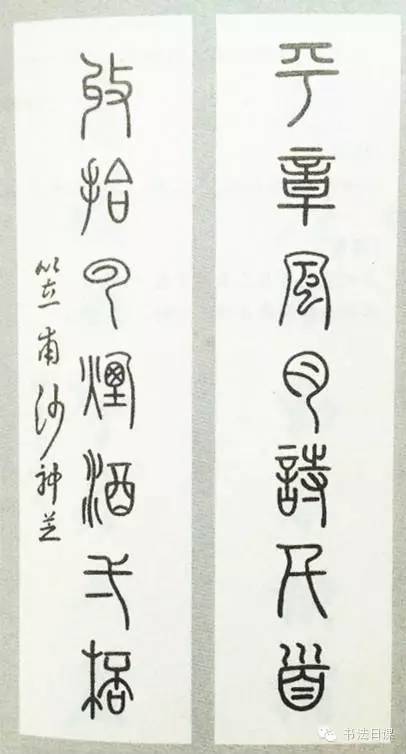 平章風月詩千首
收拾云煙酒弌桮
笠甫沙神芝
书法日课